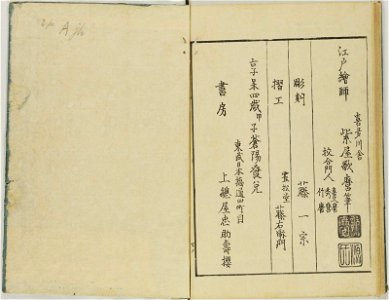 江戸繪師
喜多川舎
紫屋歌麿筆
校合門人
秀麿
竹麿
彫刻 藤一宗
摺工 藤右衛門
享和四歳甲子蒼陽發兌
東武日本橋通四町目
書房 上總屋忠助壽梓